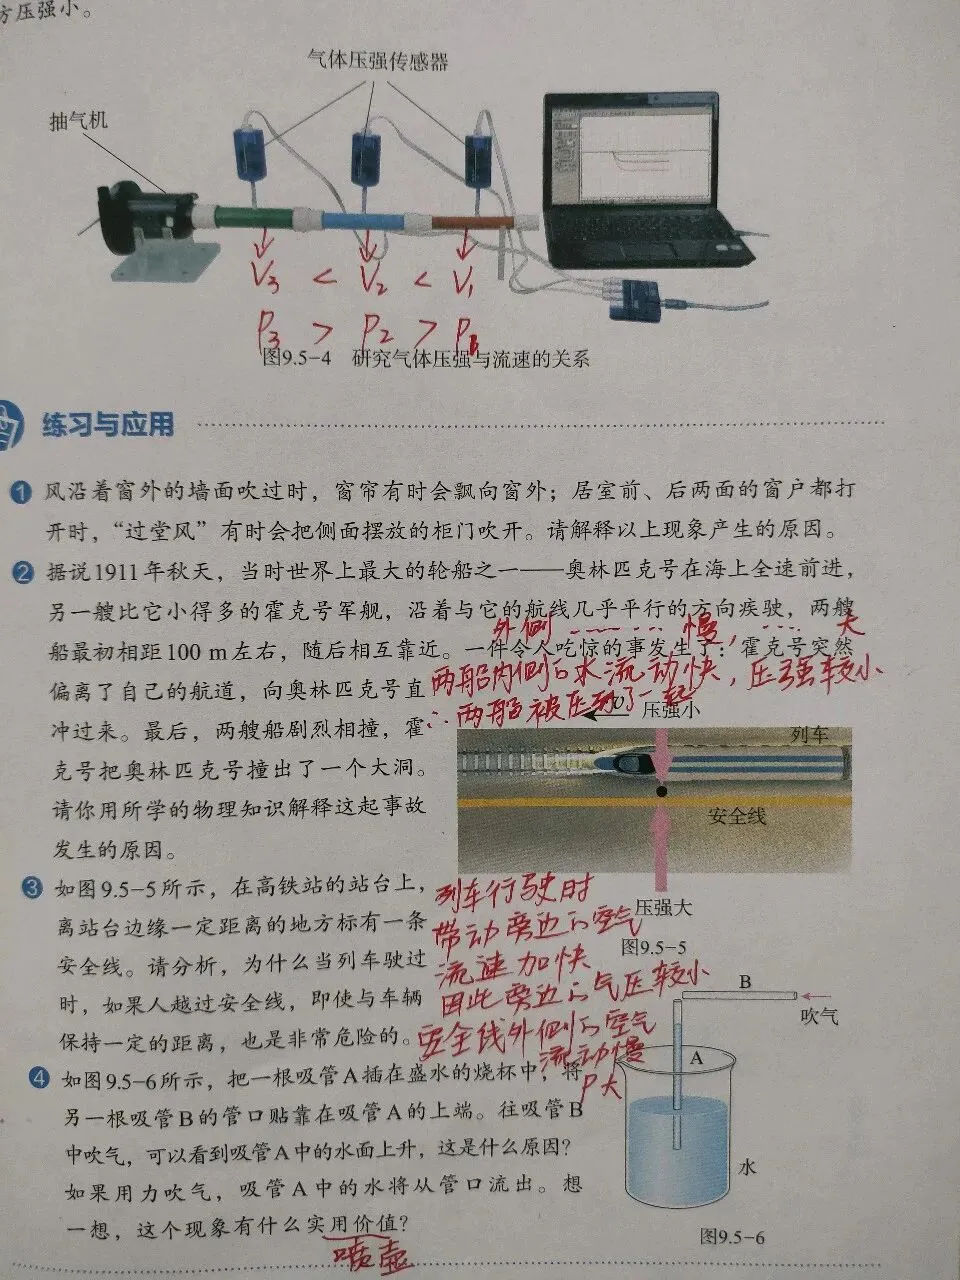 方压强小。
气体压强传感器
抽气机
V₃ < V₂ < V₁
P₃ > P₂ > P₁
图9.5-4 研究气体压强与流速的关系
练习与应用
1 风沿着窗外的墙面吹过时，窗帘有时会飘向窗外；居室前、后两面的窗户都打
开时，“过堂风”有时会把侧面摆放的柜门吹开。请解释以上现象产生的原因。
2 据说1911年秋天，当时世界上最大的轮船之一——奥林匹克号在海上全速前进，
另一艘比它小得多的霍克号军舰，沿着与它的航线几乎平行的方向疾驶，两艘
外侧 …… 慢，… 大
船最初相距100 m左右，随后相互靠近。一件令人吃惊的事发生了：霍克号突然
偏离了自己的航道，向奥林匹克号直
两船内侧的水流动快，压强较小
∴两船被压到了一起
冲过来。最后，两艘船剧烈相撞，霍
克号把奥林匹克号撞出了一个大洞。
请你用所学的物理知识解释这起事故
发生的原因。
v 压强小
列车
安全线
压强大
图9.5-5
3 如图9.5-5所示，在高铁站的站台上，
离站台边缘一定距离的地方标有一条
安全线。请分析，为什么当列车驶过
时，如果人越过安全线，即使与车辆
保持一定的距离，也是非常危险的。
列车行驶时
带动旁边的空气
流速加快
因此旁边的气压较小
安全线外侧的空气
流动慢
P大
4 如图9.5-6所示，把一根吸管A插在盛水的烧杯中，将
另一根吸管B的管口贴靠在吸管A的上端。往吸管B
中吹气，可以看到吸管A中的水面上升，这是什么原因？
如果用力吹气，吸管A中的水将从管口流出。想
一想，这个现象有什么实用价值？
喷壶
B
吹气
A
水
图9.5-6